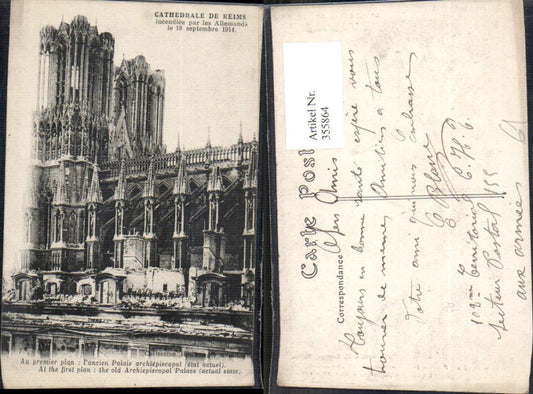 CATHEDRALE DE REIMS
incendiée par les Allemands
le 18 septembre 1914.
Collection
Au premier plan : l'ancien Palais archiépiscopal (état actuel).
At the first plan : the old Archiepiscopal Palace (actual state).
Artikel Nr.
355864
Carte Post
Correspondance
Chers Amis
Toujours en bonne santé espère vous
trouver de même Amitiés à tous
Votre ami qui vous embrasse
E
102me territorial 6 Cie
Secteur Postal 155
aux armées